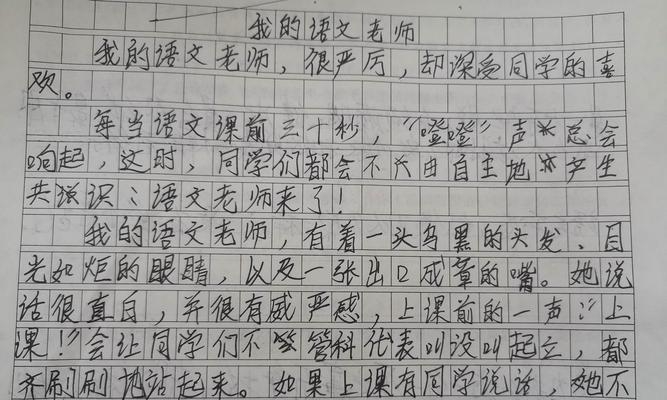 我的语文老师
我的语文老师，很严厉，却深受同学的喜
欢。
每当语文课前三十秒，“噔噔”声总会
响起，这时，同学们都会不由自主地产生
共识：语文老师来了！
我的语文老师，有着一头乌黑的头发、目
光如炬的眼睛，以及一张出口成章的嘴。她说
话很直白，并很有威严感，上课前的一声：“上
课！”会让同学们不管科代表叫没叫起立，都
齐刷刷地站起来。如果上课有同学说话，她不